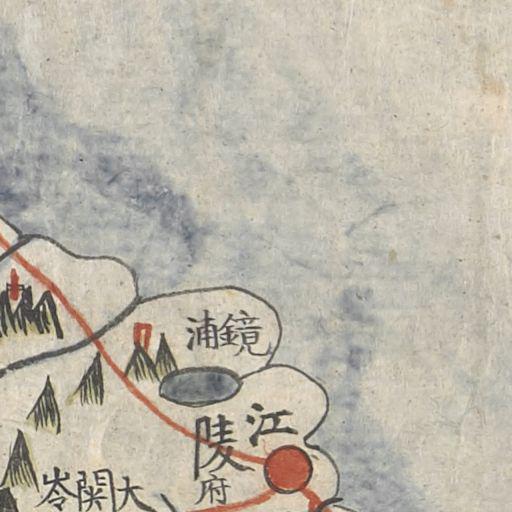 鏡浦
江陵
府
大関岺